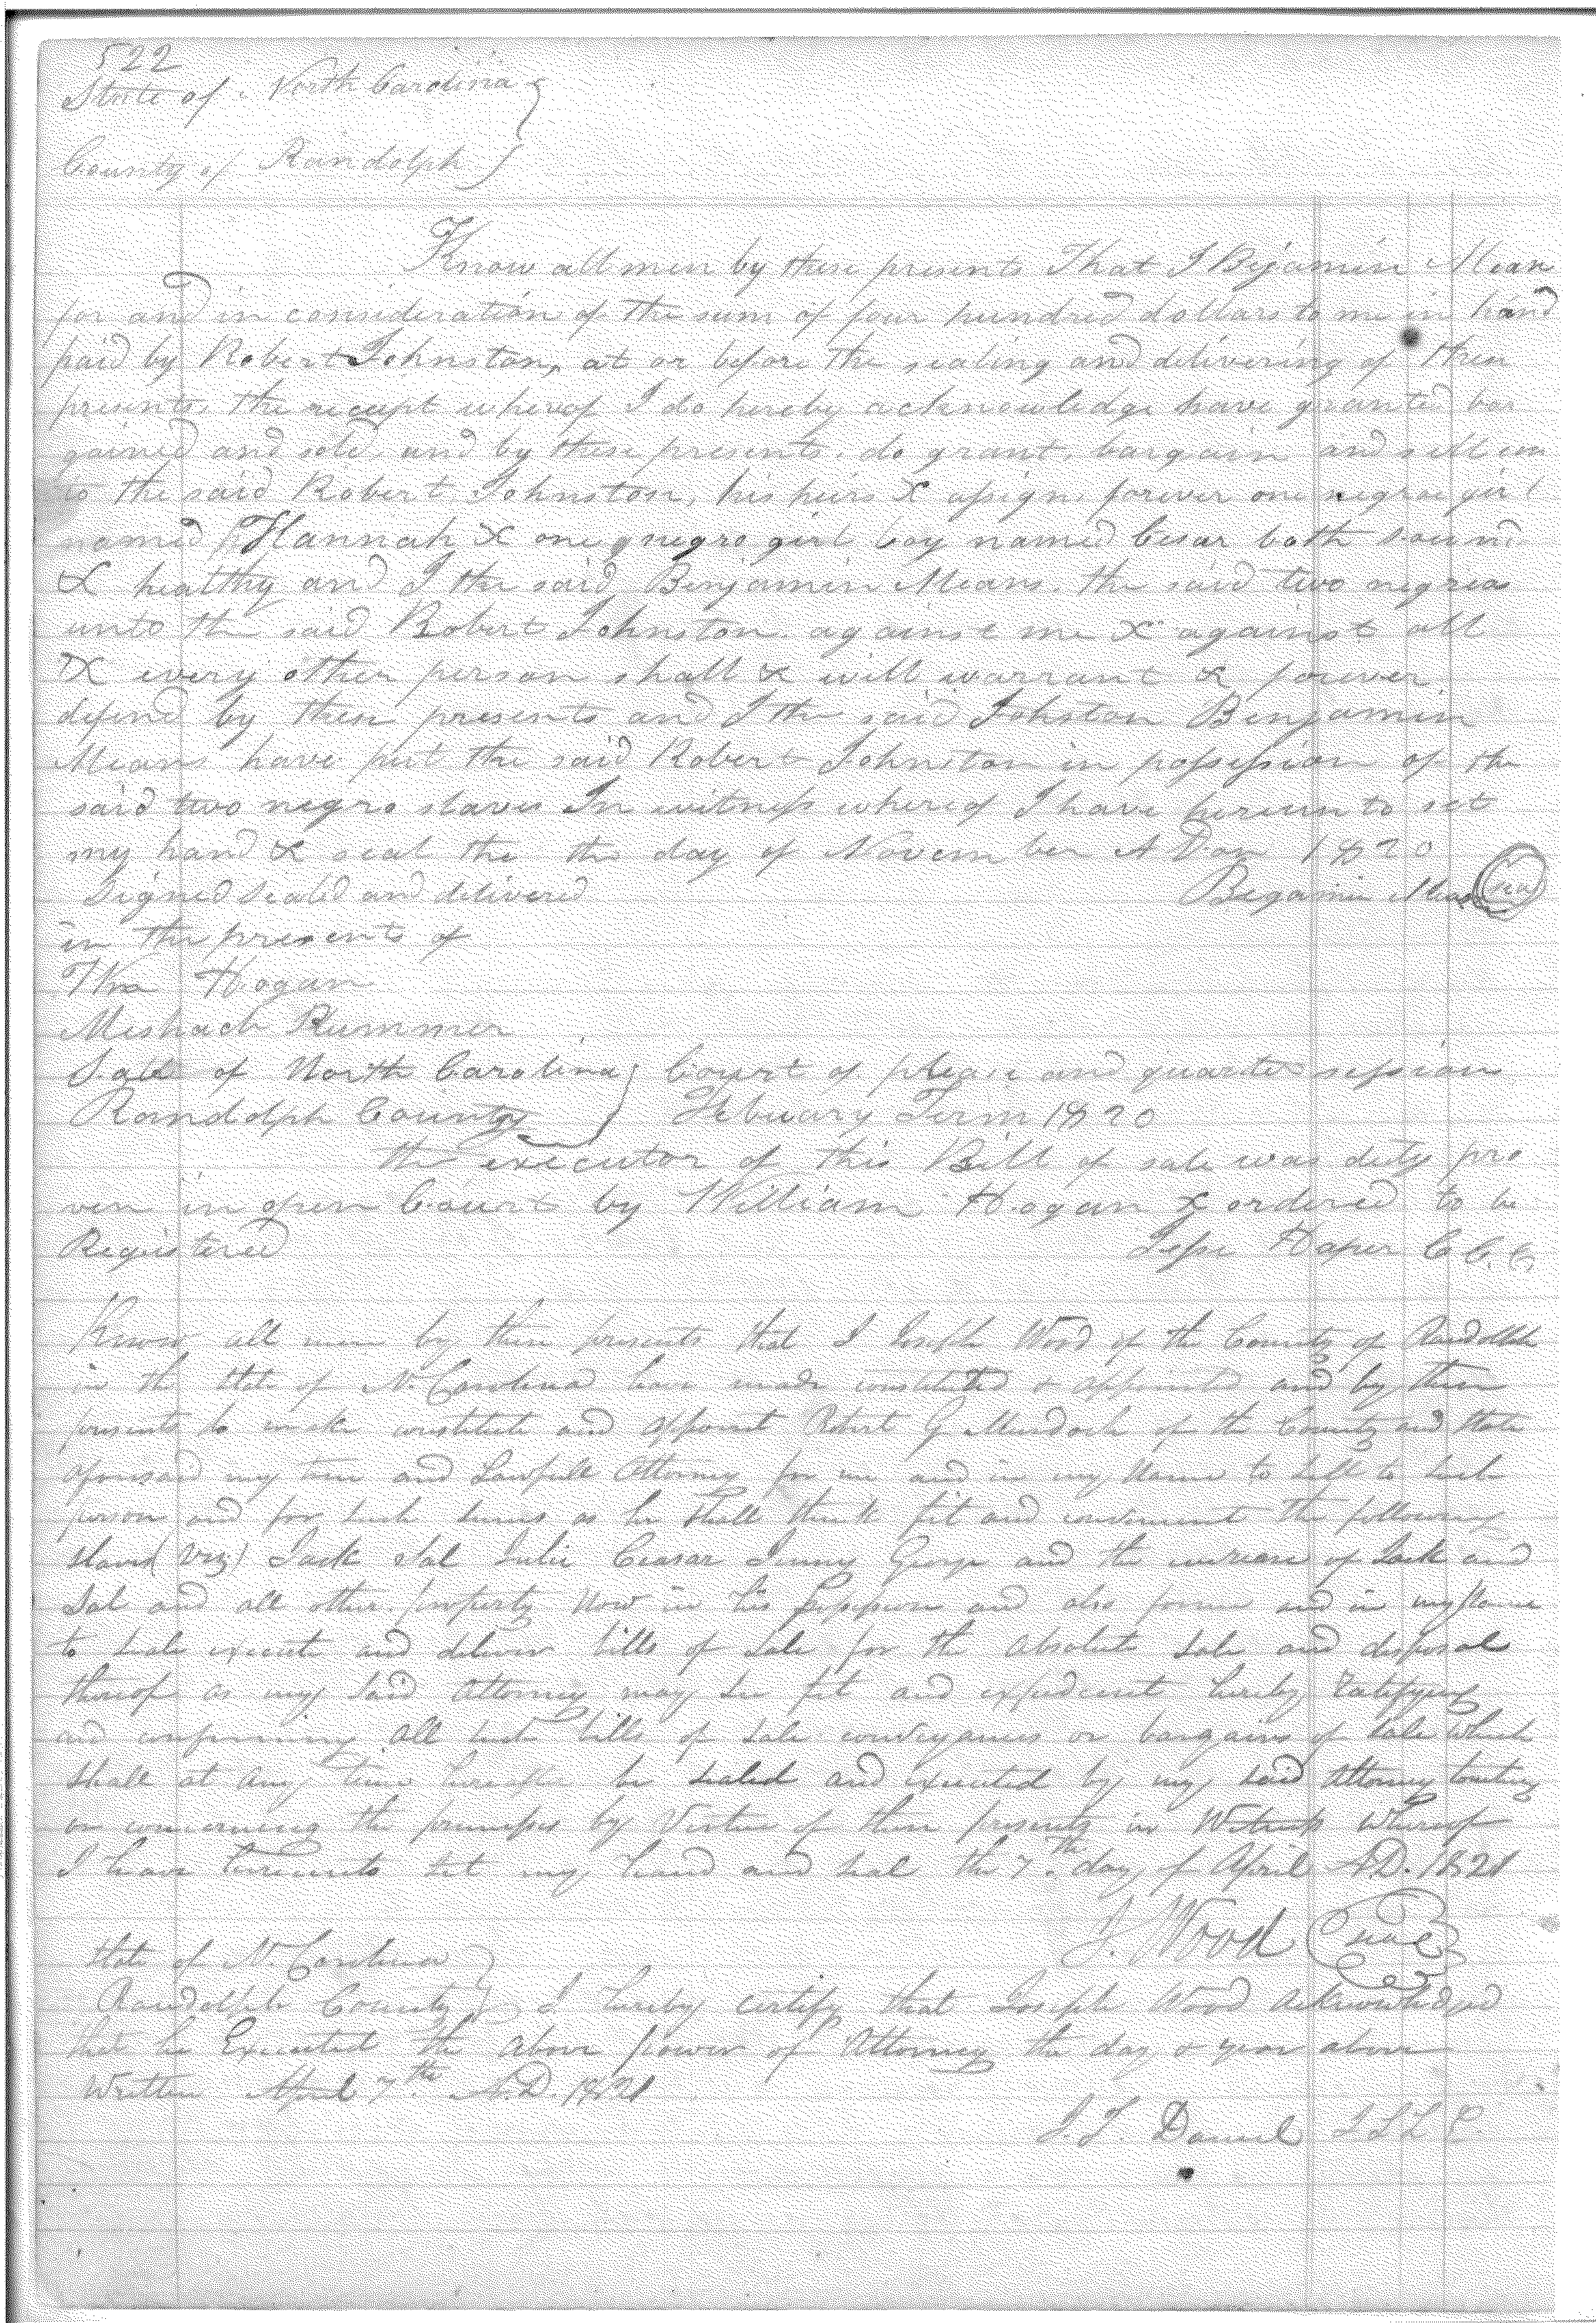 522
State of North Carolina
County of Randolph
Know all men by these presents That I Bejamin Mean
for and in consideration of the sum of four hundred dollars to me in hand
paid by Robert Johnston, at or before the sealing and delivering of these
presents, the receipt whereof I do hereby acknowledge have granted bar
gained and sold, and by these presents, do grant, bargain and sell un
to the said Robert Johnston, his heirs & assigns forever one negroe girl
named Hannah & one negro girl boy named Cesar both sound
& healthy and I the said Benjamin Means. the said two negroes
unto the said Robert Johnston against me & against all
& every other person shall & will warrant & forever
defend by these presents and I the said Johston Benjamin
Means have put the said Robert Johnston in possession of the
said two negro slaves In witness whereof I have hereunto set
my hand & seal the this day of November A Don 1820
Signed Seald and delivered Bejamin Means seal
in the presents of
Wm Hogan
Meshach Rummer
State of North Carolina Court of please and quarter session
Randolph County Febuary Term 1820
the executor of this Bill of sale was duly pro
ven in open Court by William Hogan & ordered to be
Registered Jesse Haper C C. C.
Know all men by these presents that I Joseph Wood of the County of Randolph
in the State of N. Carolina have made constituted & appointed and by these
presents do make constitute and appoint Robert G Murdock of the County and State
aforesaid my true and Lawfull Attorney for me and in my Name to Sell to Such
person and for Such Sums as he Shall think fit and convenient the following
Slaves (Viz) Jack Sal Julie Ceasar Jinny George and the increase of Jack and
Sal and all other property Now in his Possession and also for me and in my Name
to Seale execute and deliver bills of Sale for the absolute Sale and disposal
thereof as my Said Attorney may See fit and expedient hereby Ratifying
and confirming All Such bills of Sale conveyances or bargains of Sale which
Shall at any time hereafter be Sealed and executed by my Said Attorney touching
or concerning the premises by Virtue of these presents in Witness Whereof
I have hereunto Set my hand and Seal the 7.th day of April A.D. 1821
J. Wood Seal
State of N. Carolina
Randolph County I hereby certify that Joseph Wood Acknowledged
that he Executed the above power of Attorney the day & year above
Written April 7.th A.D. 1821
J. J. Daniel